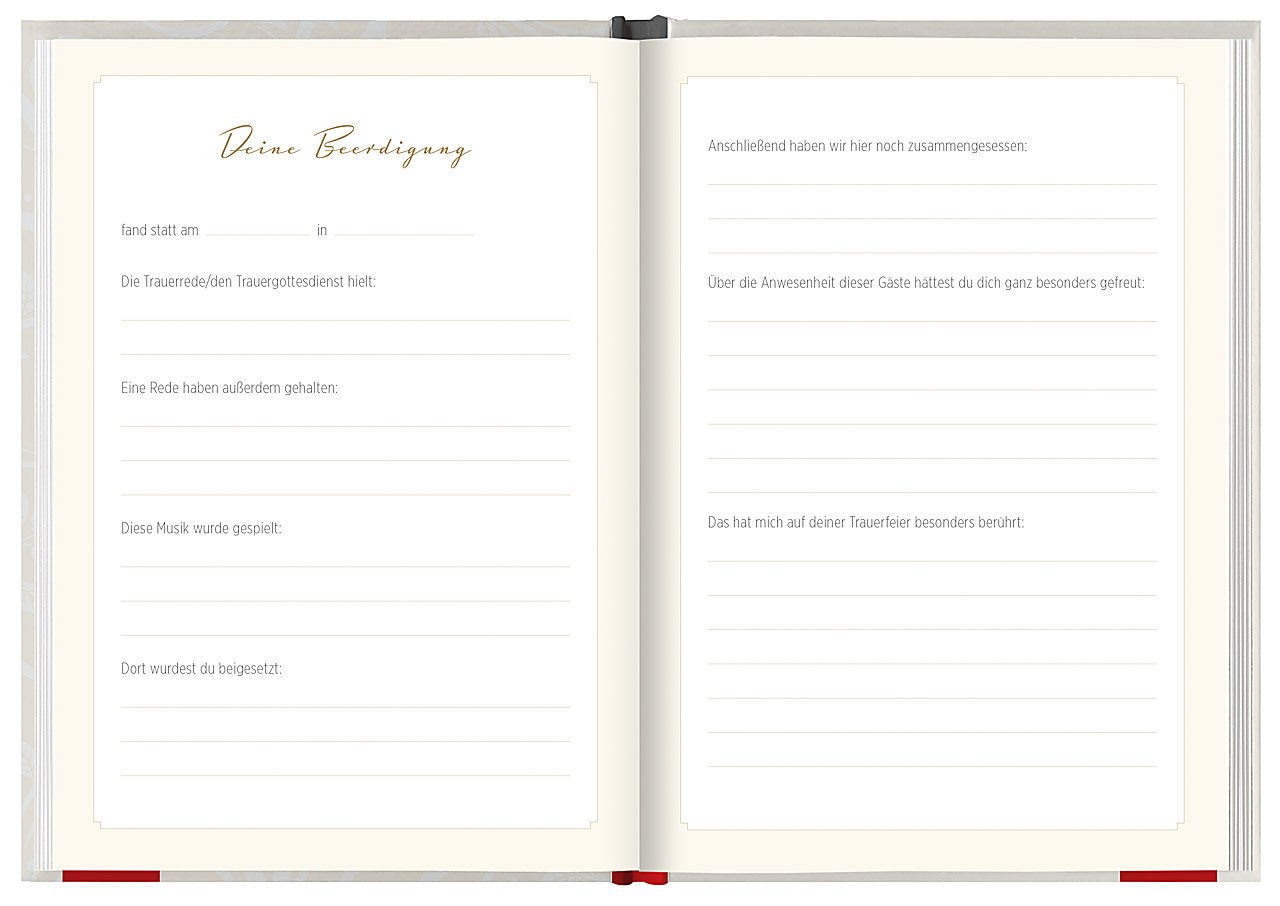 Deine Beerdigung
fand statt am in
Die Trauerrede/den Trauergottesdienst hielt:
Eine Rede haben außerdem gehalten:
Diese Musik wurde gespielt:
Dort wurdest du beigesetzt:
Anschließend haben wir hier noch zusammengesessen:
Über die Anwesenheit dieser Gäste hättest du dich ganz besonders gefreut:
Das hat mich auf deiner Trauerfeier besonders berührt: